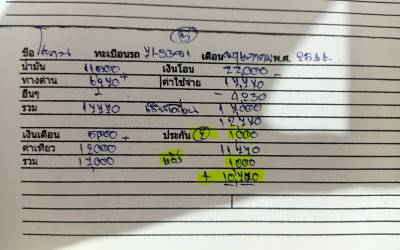 3
ชื่อ ทะเบียนรถ 71-3381 เดือน พฤษภาคม พ.ศ. 2566
น้ำมัน 11500 เงินโอน 22000
ทางด่วน 6270 + ค่าใช้จ่าย 17,770 -
อื่นๆ - 4,230
รวม 17770 17,000
12,770
เงินเดือน 5000 + ประกัน 2 1000
ค่าเที่ยว 12000 11,770
รวม 17,000 แล้ว 1000
+ 10,770